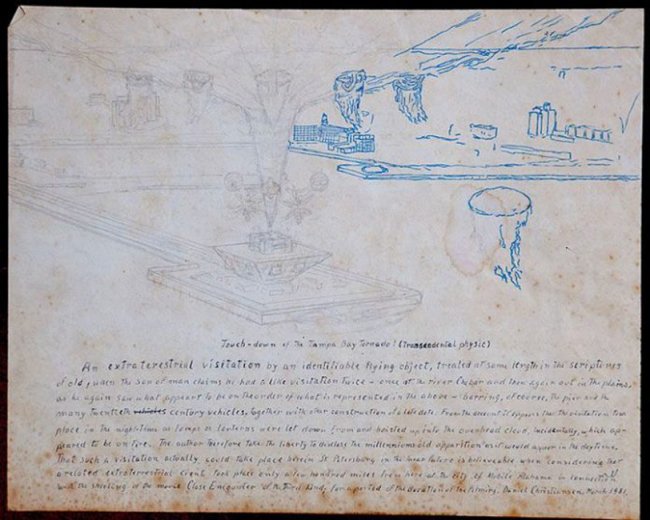 Touch-down of the Tampa Bay Tornado! (Transendental physic)
An extraterestrial visitation by an identifiable flying object, treated at some length in the scriptures
of old, when the son of man claims he had a like visitation twice - once at the river Chebar and then again out in the plains,
as he again saw what appear to be on the order of what is represented in the above - barring, of course, the pier and the
many Twentieth vehicles century vehicles, together with other construction of a late date. From the account it appears that the visitation took
place in the nighttime as lamps or lanterns were let down from and hoisted up into the overhead cloud, incidentally, which ap-
peared to be on fire. The author therefore take the liberty to disclose the millenniums old apparition as it would appear in the daytime.
That such a visitation actually could take place herein St. Petersburg in the near future is believeable when considering that
a related extraterrestrial event took place only a few hundred miles from here at the city of Mobile Alabama in connection
with the shooting of the movie Close Encounter of the Third Kind, for a period of the duration of the filming. Daniel Christiansen, March 1981.